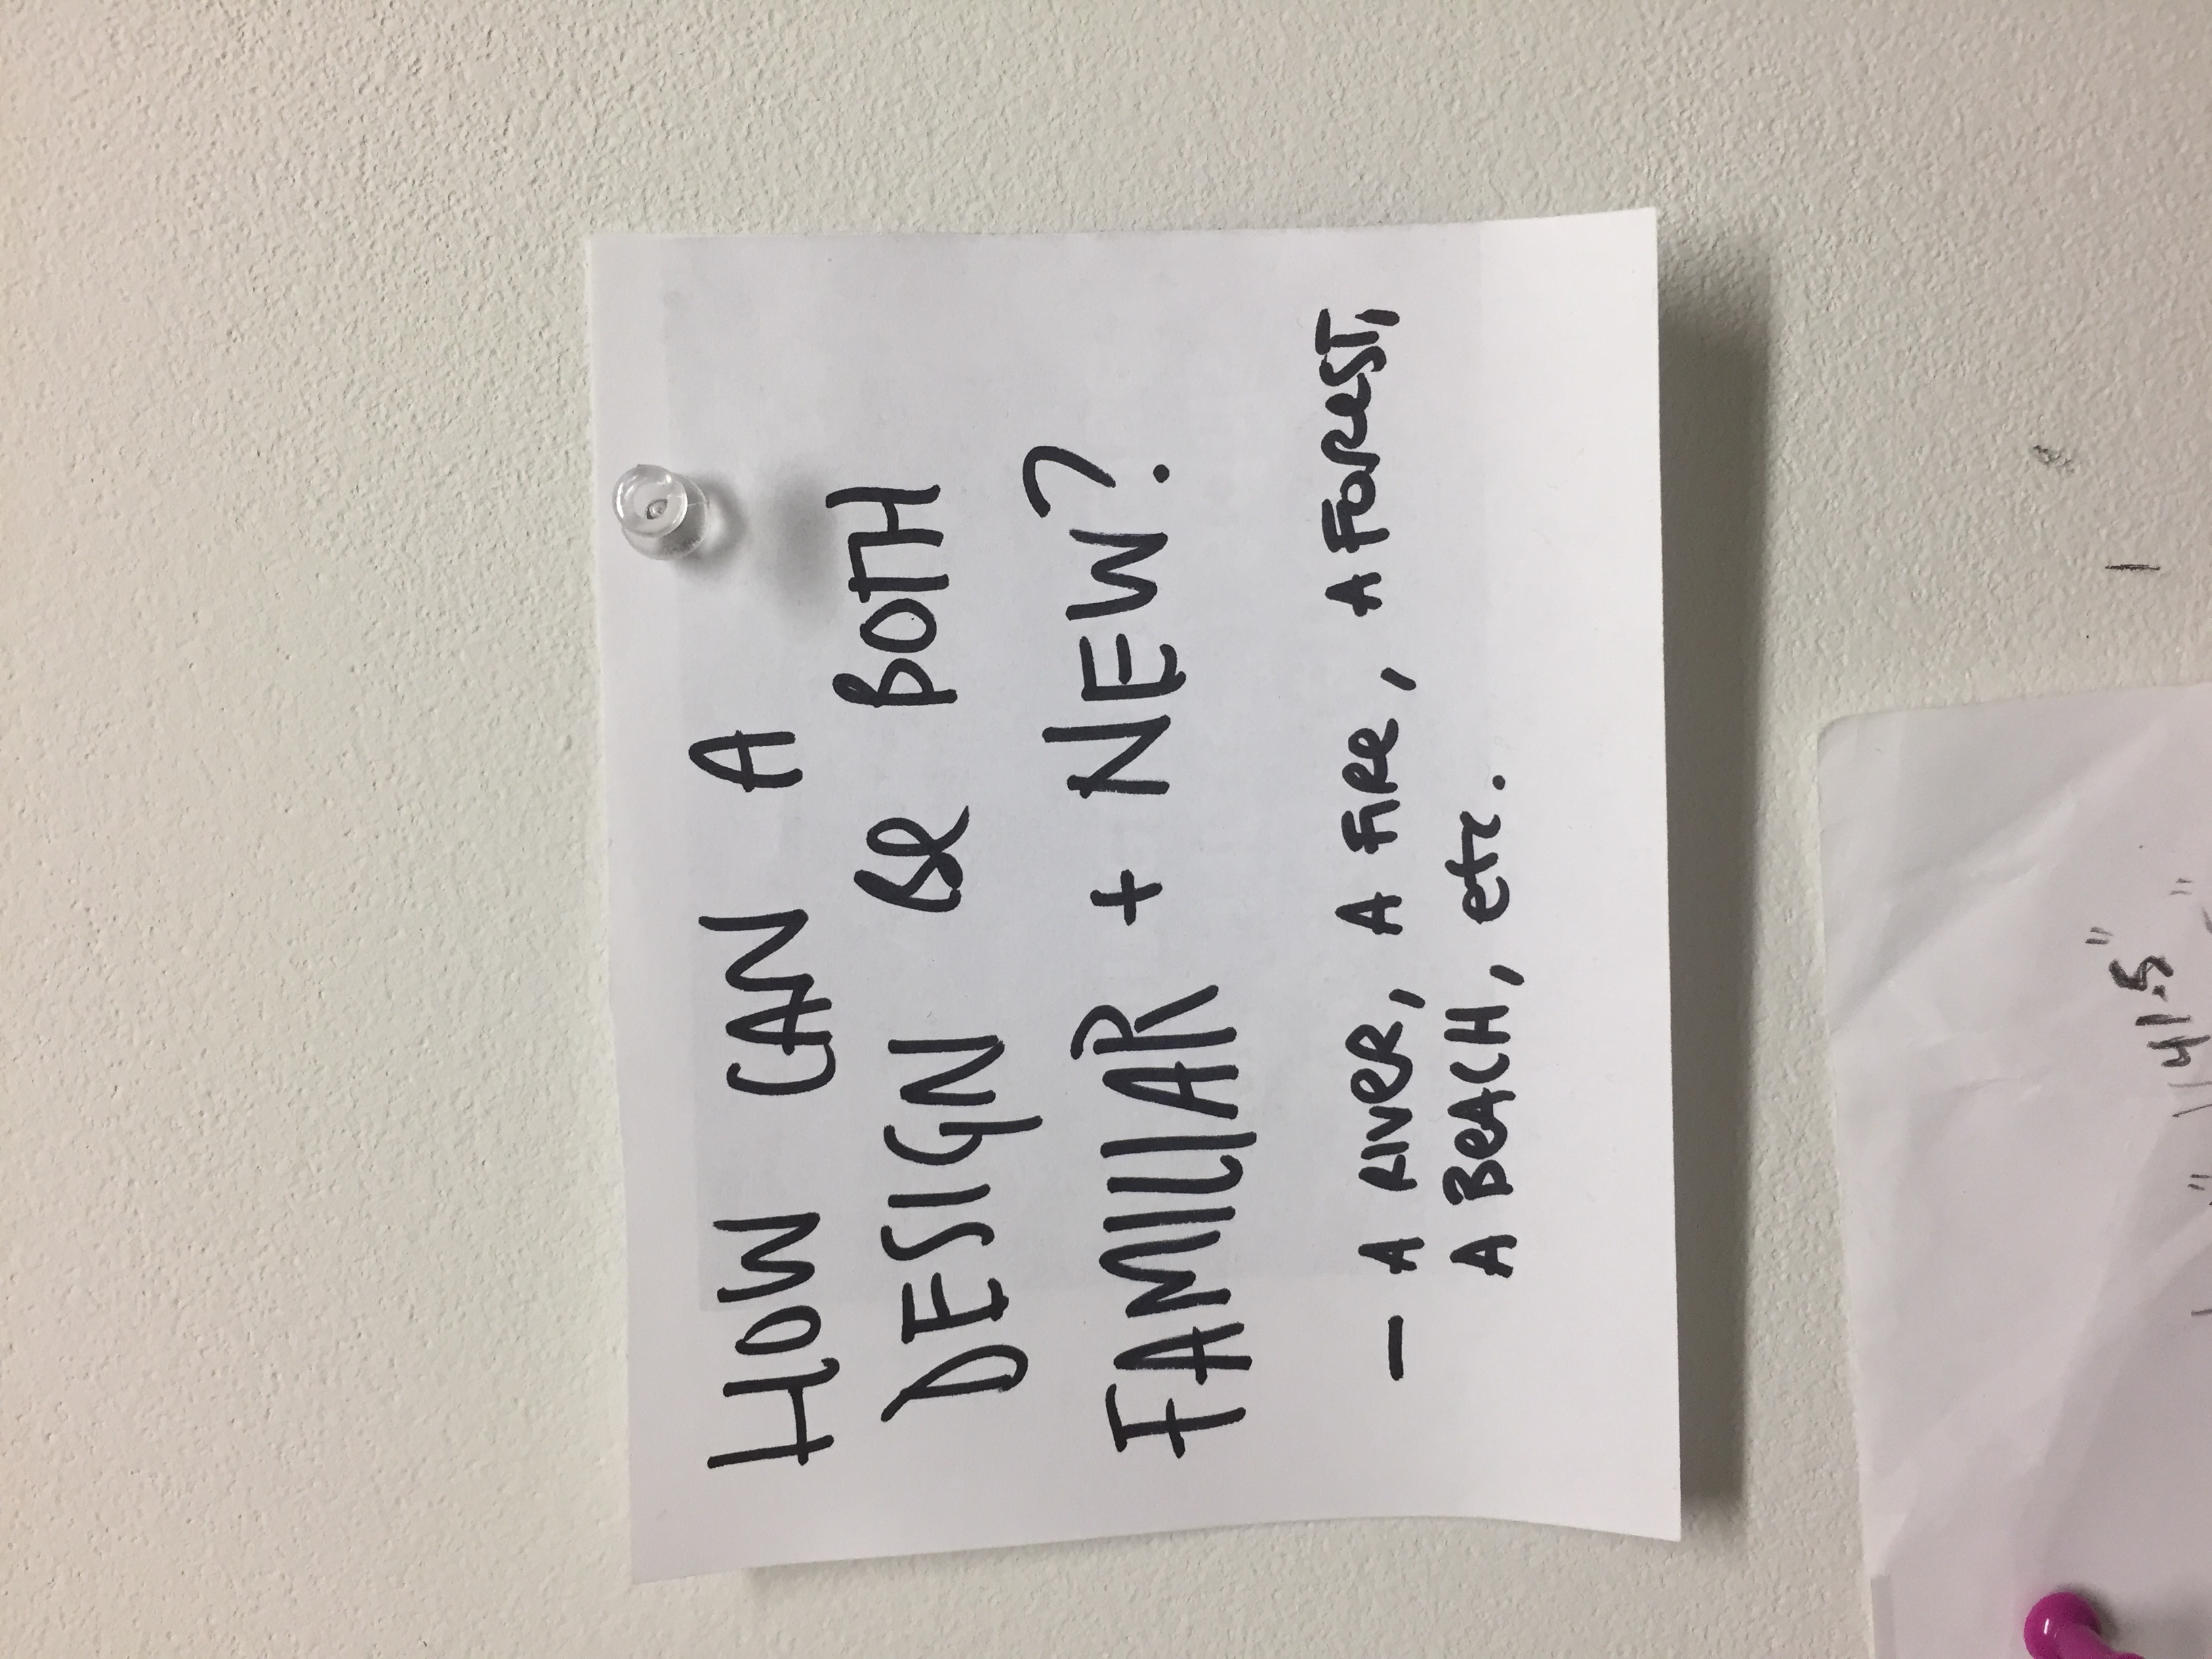 HOW CAN A
DESIGN Be BOTH
FAMILIAR + NEW?
— A RIVeR, A FIRe, A FOReST,
A BeACH, etc.
41.5"